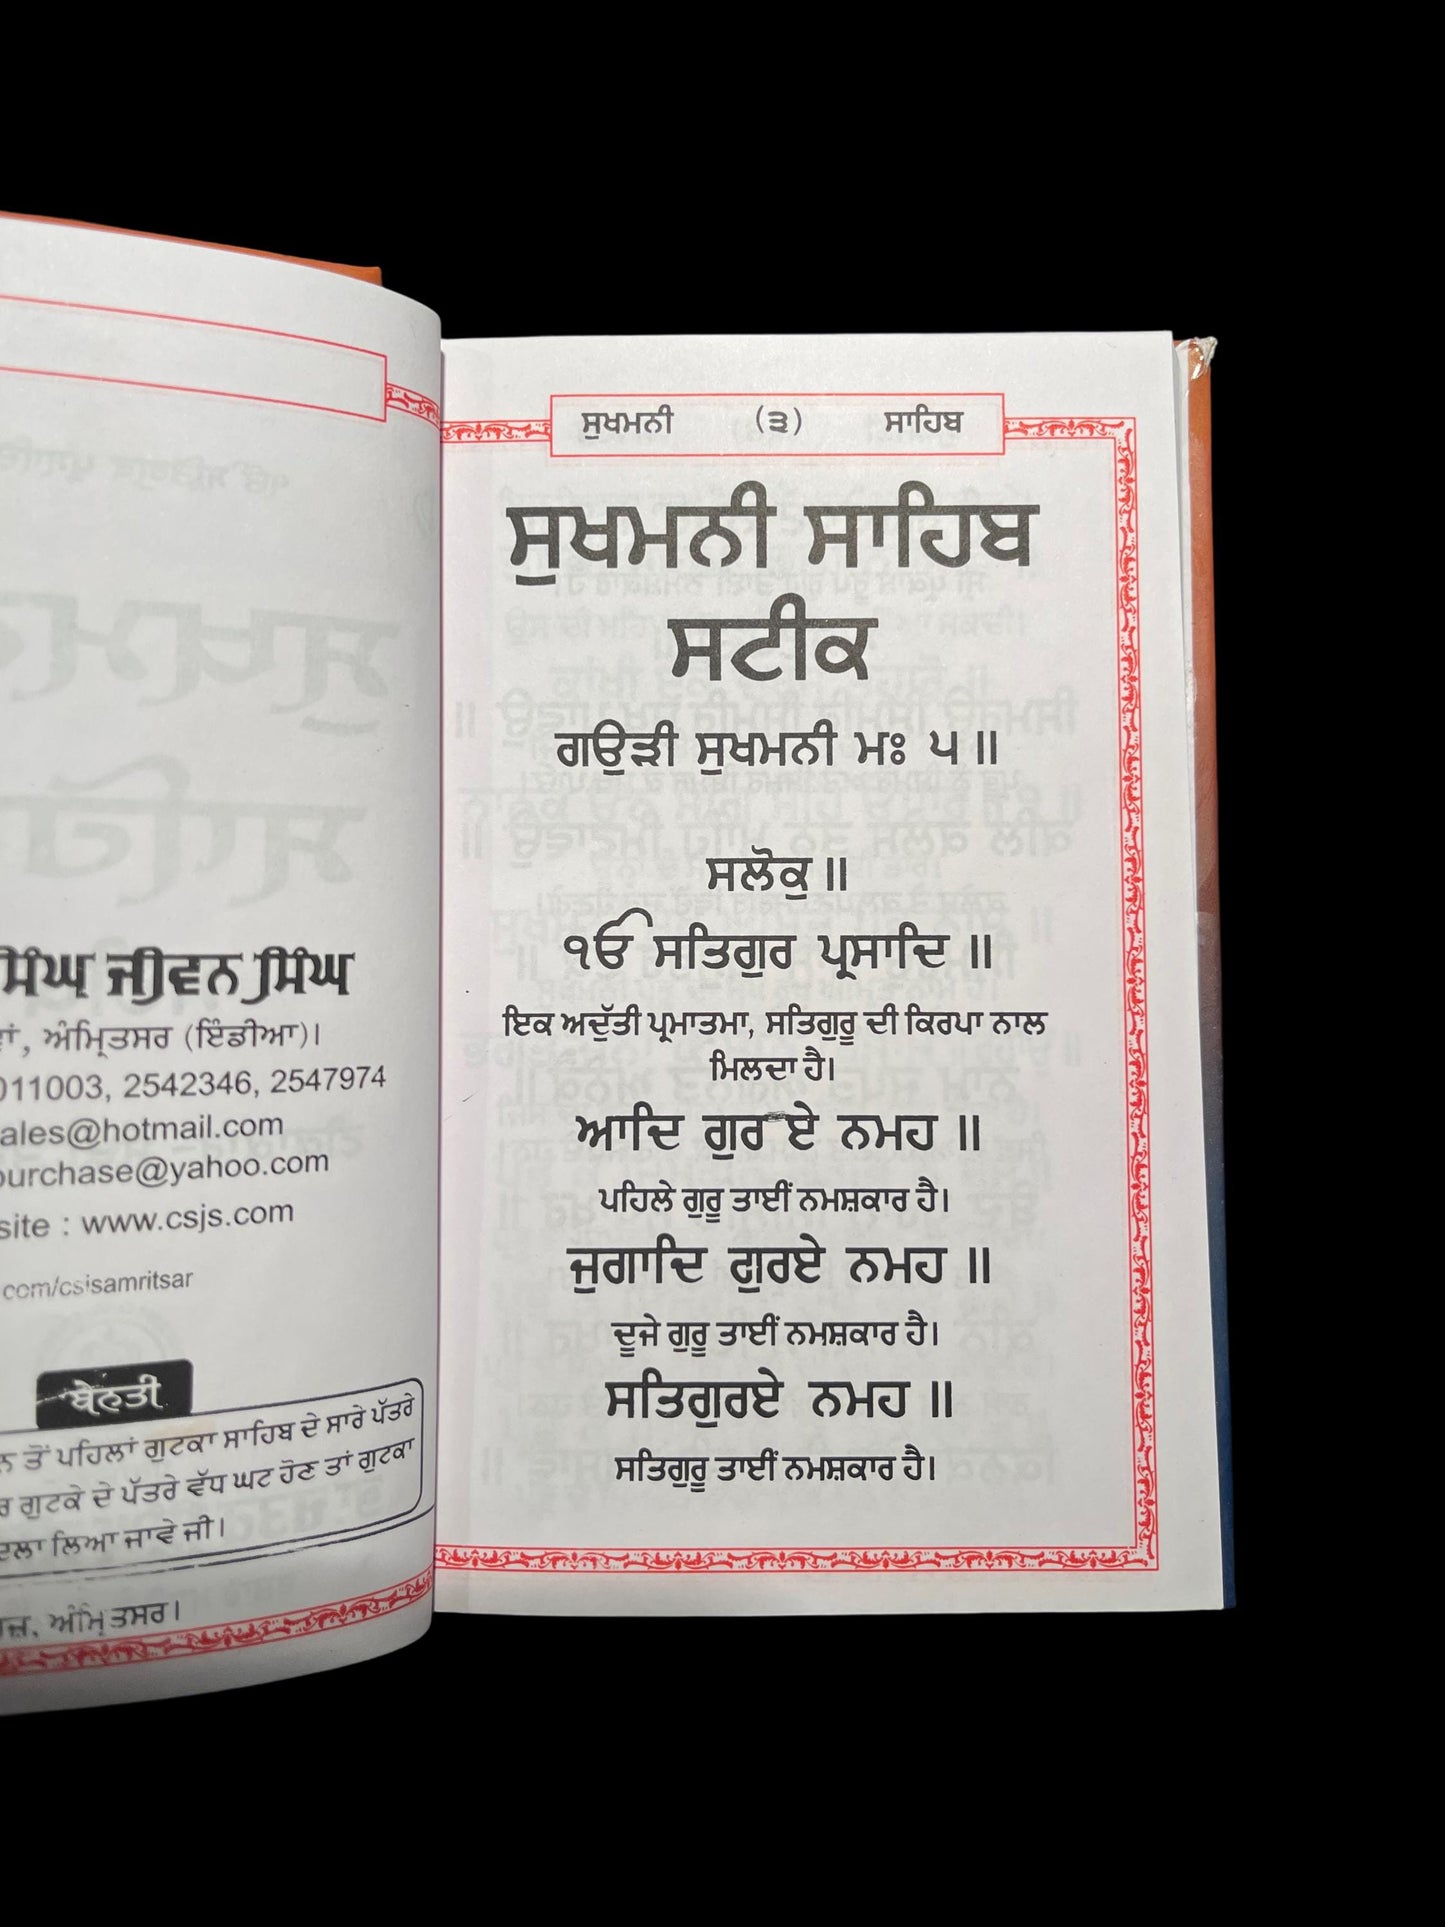 ਸਿੰਘ ਜੀਵਨ ਸਿੰਘ
ਅੰਮ੍ਰਿਤਸਰ (ਇੰਡੀਆ)।
011003, 2542346, 2547974
ales@hotmail.com
purchase@yahoo.com
site : www.csjs.com
com/csjsamritsar
ਬੇਨਤੀ
ਨ ਤੋਂ ਪਹਿਲਾਂ ਗੁਟਕਾ ਸਾਹਿਬ ਦੇ ਸਾਰੇ ਪੱਤਰੇ
ਰ ਗੁਟਕੇ ਦੇ ਪੱਤਰੇ ਵੱਧ ਘਟ ਹੋਣ ਤਾਂ ਗੁਟਕਾ
ਦਲਾ ਲਿਆ ਜਾਵੇ ਜੀ।
ਅੰਮ੍ਰਿਤਸਰ।
ਸੁਖਮਨੀ (੩) ਸਾਹਿਬ
ਸੁਖਮਨੀ ਸਾਹਿਬ
ਸਟੀਕ
ਗਉੜੀ ਸੁਖਮਨੀ ਮਃ ੫ ॥
ਸਲੋਕੁ ॥
ੴ ਸਤਿਗੁਰ ਪ੍ਰਸਾਦਿ ॥
ਇਕ ਅਦੁੱਤੀ ਪ੍ਰਮਾਤਮਾ, ਸਤਿਗੁਰੂ ਦੀ ਕਿਰਪਾ ਨਾਲ
ਮਿਲਦਾ ਹੈ।
ਆਦਿ ਗੁਰ ਏ ਨਮਹ ॥
ਪਹਿਲੇ ਗੁਰੂ ਤਾਈਂ ਨਮਸ਼ਕਾਰ ਹੈ।
ਜੁਗਾਦਿ ਗੁਰਏ ਨਮਹ ॥
ਦੂਜੇ ਗੁਰੂ ਤਾਈਂ ਨਮਸ਼ਕਾਰ ਹੈ।
ਸਤਿਗੁਰਏ ਨਮਹ ॥
ਸਤਿਗੁਰੂ ਤਾਈਂ ਨਮਸ਼ਕਾਰ ਹੈ।